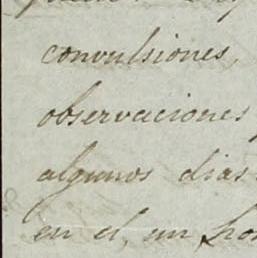 convulsiones,
observaciones
algunos dias
en el, un